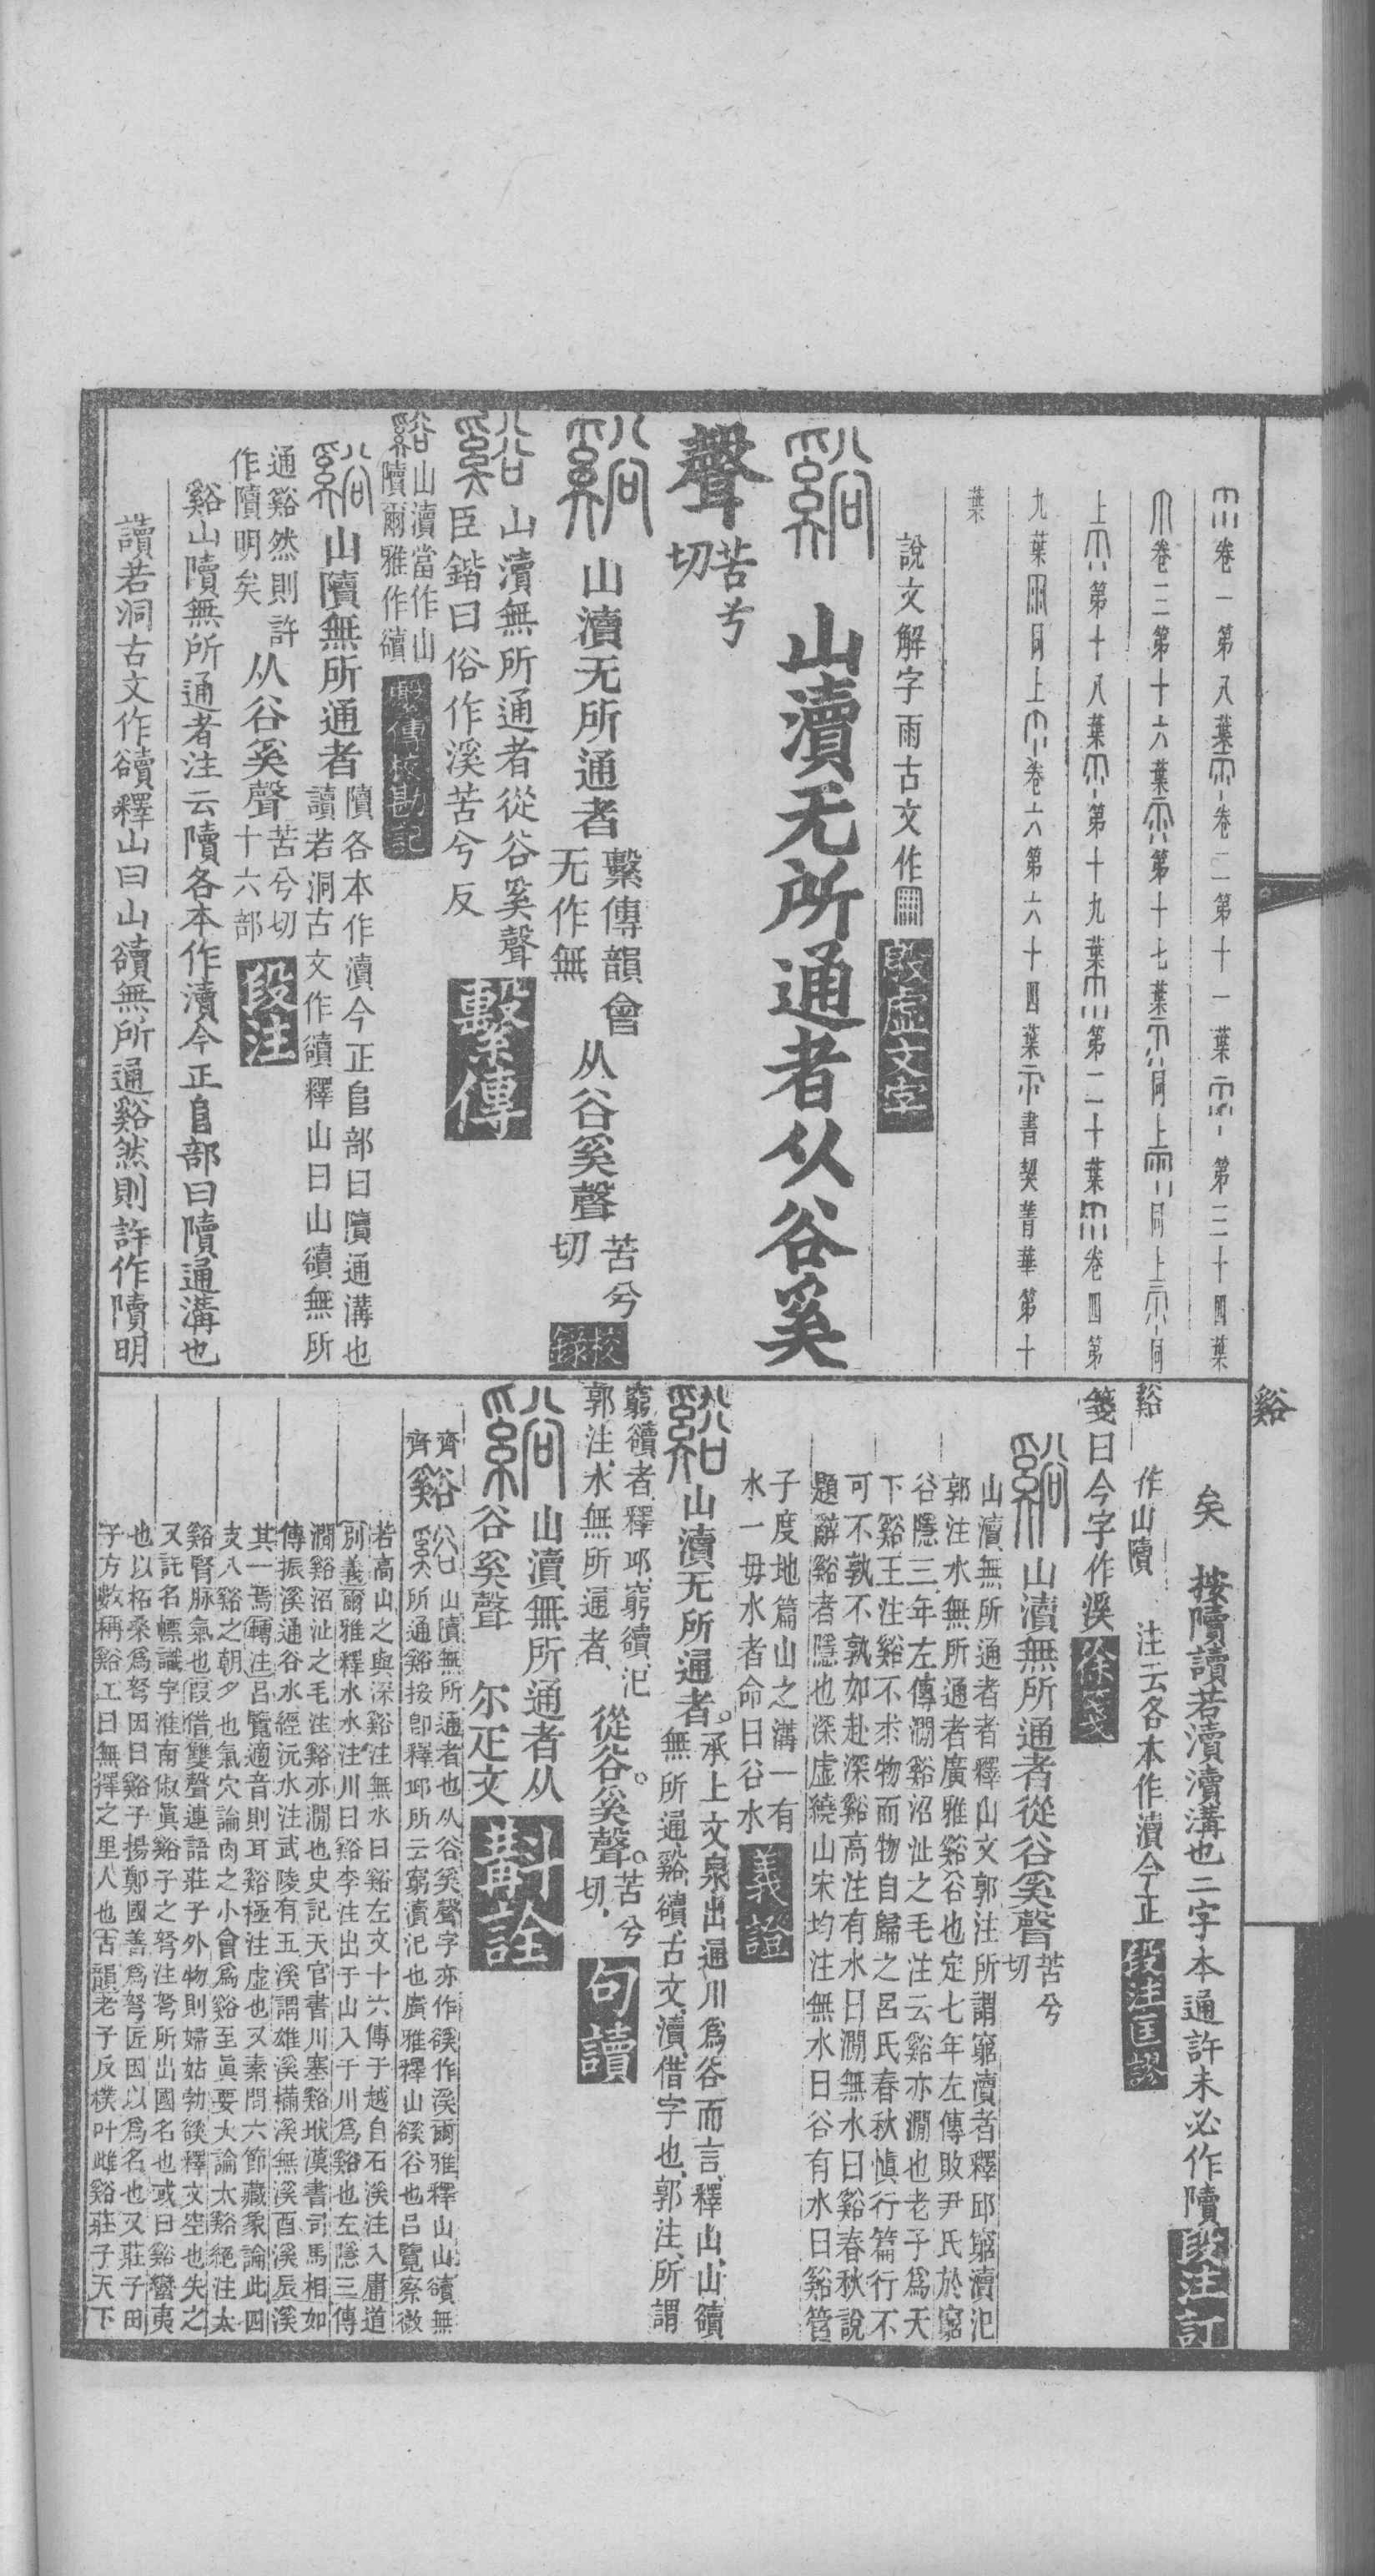 卷一第八葉 卷二第十一葉 第三十四葉
卷三第十六葉 第十七葉 同上 同上 同
上 第十八葉 第十九葉 第二十葉 卷四第
九葉 同上 卷六第六十四葉 書契菁華第十
葉
說文解字雨古文作𠕲
段虛文字
谿 山瀆无所通者从谷奚
聲 苦兮切
谿 山瀆无所通者 繫傳韻會无作無 从谷奚聲 苦兮切 校錄
谿 山瀆無所通者從谷奚聲
臣鍇曰俗作溪苦兮反 繫傳
谿 山瀆當作山
隫爾雅作𧮾 繫傳校勘記
谿 山隫無所通者 隫各本作瀆今正𨸏部曰隫通溝也
讀若洞古文作𧮾釋山曰山𧮾無所
通谿然則許
作隫明矣 从谷奚聲 苦兮切十六部 段注
谿山隫無所通者注云隫各本作瀆今正𨸏部曰隫通溝也
讀若洞古文作𧮾釋山曰山𧮾無所通谿然則許作隫明
矣 按隫讀若瀆瀆溝也二字本通許未必作隫 段注訂
谿 作山隫 注云各本作瀆今正 段注匡謬
箋曰今字作溪 徐箋
谿 山瀆無所通者從谷奚聲 苦兮切
山瀆無所通者者釋山文郭注所謂窮瀆者釋邱窮瀆汜
郭注水無所通者廣雅谿谷也定七年左傳敗尹氏於窮
谷隱三年左傳澗谿沼沚之毛注云谿亦澗也老子爲天
下谿王注谿不求物而物自歸之呂氏春秋愼行篇行不
可不孰不孰如赴深谿高注有水曰澗無水曰谿春秋說
題辭谿者隱也深虛繞山宋均注無水曰谷有水曰谿管
子度地篇山之溝一有
水一毋水者命曰谷水 義證
谿 山瀆无所通者 承上文泉出通川爲谷而言釋山山𧮾
無所通谿𧮾古文瀆借字也郭注所謂
窮𧮾者釋邱窮𧮾汜
郭注水無所通者 從谷奚聲 苦兮切 句讀
谿 山瀆無所通者从
谷奚聲 尔疋文 斠詮
齊齊谿 谿 山隫無所通者也从谷奚聲字亦作𧯆作溪爾雅釋山山𧮾無
所通谿按卽釋邱所云窮瀆汜也廣雅釋山𧯆谷也呂覽察微
若高山之與深谿注無水曰谿左文十六傳于越自石溪注入庸道
別義爾雅釋水水注川曰谿李注出于山入于川爲谿也左隱三傳
澗谿沼沚之毛注谿亦澗也史記天官書川塞谿垘漢書司馬相如
傳振溪通谷水經沅水注武陵有五溪謂雄溪樠溪無溪酉溪辰溪
其一焉轉注呂覽適音則耳谿極注虛也又素問六節藏象論此四
支八谿之朝夕也氣穴論肉之小會爲谿至眞要大論太谿絕注太
谿腎脉氣也假借雙聲連語莊子外物則婦姑勃谿釋文空也失之
又託名幖識字淮南俶眞谿子之弩注弩所出國名也或曰谿蠻夷
也以柘桑爲弩因曰谿子揚鄭國善爲弩匠因以爲名也又莊子田
子方數稱谿工曰無擇之里人也古韻老子反樸叶雌谿莊子天下
谿